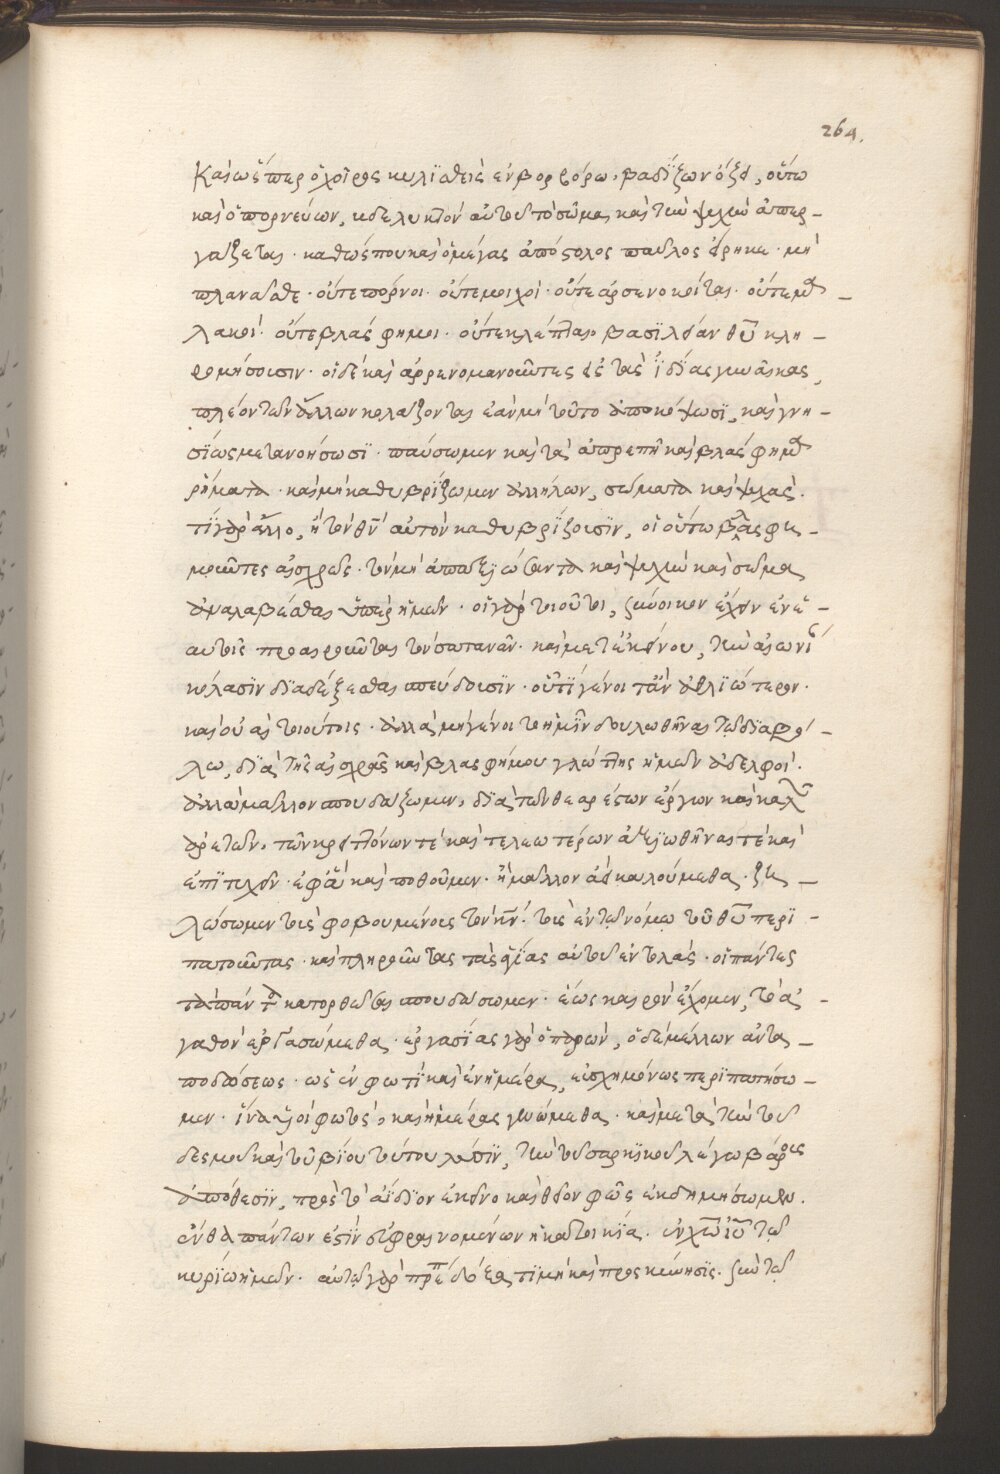 264.
Καὶ ὥσπερ ὁ χοῖρος κυλϊσθεὶς ἐν βορβόρω, βαδϊζων ὄζει, οὕτω
καὶ ὁ πορνεύων, βδελυκτὸν αὐτοῦ τὸ σῶμα, καὶ τὴν ψυχὴν ἀπερ-
γάζεται. καθώς που καὶ ὁ μέγας ἀπόστολος παῦλος εἴρηκε. μὴ
πλανᾶσθε. οὔτε πόρνοι. οὔτε μοιχοὶ. οὔτε ἀρσενοκοῖται. οὔτε μα-
λακοὶ. οὔτε βλάσφημοι. οὔτε κλέπται, βασϊλείαν θῦ κλη-
ρονομήσουσιν. οἱ δὲ καὶ ἀρρενομανοῦντες εἰς τὰς ἰδΐας γυναῖκας,
πλέον τῶν ἄλλων κολάζονται ἐὰν μὴ τοῦτο ἀποκόψωσϊ, καὶ γνη-
σΐως μετανοήσωσϊ. παύσωμεν καὶ τὰ ἀπρεπῆ καὶ βλάσφημα
ῥήματα. καὶ μὴ καθυβρΐζωμεν ἀλλήλων, σώματα καὶ ψυχάς.
τΐ γὰρ ἄλλο, ἢ τὸν θν αὐτὸν καθυβρΐζουσϊν, οἱ οὕτω βλασφη-
μοῦντες αἰσχρῶς. τὸν μὴ ἀπαξϊώσαντα καὶ ψυχὴν καὶ σῶμα
ἀναλαβέσθαι ὑπὲρ ἡμῶν. οἱ γὰρ τοιοῦτοι, ξύνοικον ἔχειν ἐν ἑ-
αυτοῖς προαιροῦνται τὸν σατανᾶν. καὶ μετ' ἐκείνου, τὴν αἰώνιον
κόλασϊν δϊαδέξασθαι σπεύδουσϊν. οὗ τΐ γένοιτ' ἂν ἀθλϊώτερον.
καὶ οὐαὶ τοιούτοις. ἀλλὰ μὴ γένοιτο ἡμῖν δουλωθῆναι τῷ δϊαβό-
λω, δϊὰ τῆς αἰσχρᾶς καὶ βλασφήμου γλώττης ἡμῶν ἀδελφοὶ.
ἀλλὰ μᾶλλον σπουδάζωμεν, δϊὰ τῶν θεαρέστων ἔργων καὶ καλῶν
ἀρετῶν, τῶν κρειττόνων τὲ καὶ τελεωτέρων ἀξϊωθῆναι τὲ καὶ
ἐπϊτυχεῖν. ἐφ' ἃ καὶ ποθοῦμεν. ἢ μᾶλλον εἰσκαλούμεθα. ζη-
λώσωμεν τοὺς φοβουμένους τὸν κν. τοὺς ἐν τῷ νόμῳ τοῦ θῦ περϊ-
πατοῦντας. καὶ πληροῦντας τὰς ἁγΐας αὐτοῦ ἐντολάς. οἱ πάντες
τὸ πᾶν κατορθῶσαι σπουδάσωμεν. ἕως καιρὸν ἔχομεν, τὸ ἀ-
γαθὸν ἐργασώμεθα. ἐργασΐας γὰρ ὁ παρὼν, ὁ δὲ μέλλων ἀντα-
ποδόσεως. ὡς ἐν φωτϊ καὶ ἐν ἡμέρα, εὐσχημόνως περϊπατήσω-
μεν. ἵνα υἱοὶ φωτὸς, καὶ ἡμέρας γενώμεθα. καὶ μετὰ τὴν τοῦ
δεσμοῦ καὶ τοῦ βΐου τούτου λύσϊν, τὴν τοῦ σαρκϊκοῦ λέγω βάρους
ἀπόθεσϊν, πρὸς τὸ ἀΐδϊον ἐκεῖνο καὶ θεῖον φῶς ἐκδημήσωμεν.
ἔνθα πάντων ἐστὶν εὐφραινομένων ἡ κατοικΐα. ἐν χῶ ἰῦ τῷ
κυρΐω ἡμῶν. αὐτῷ γὰρ πρέπει δόξα τϊμὴ καὶ προσκύνησϊς. ξὺν τῷ